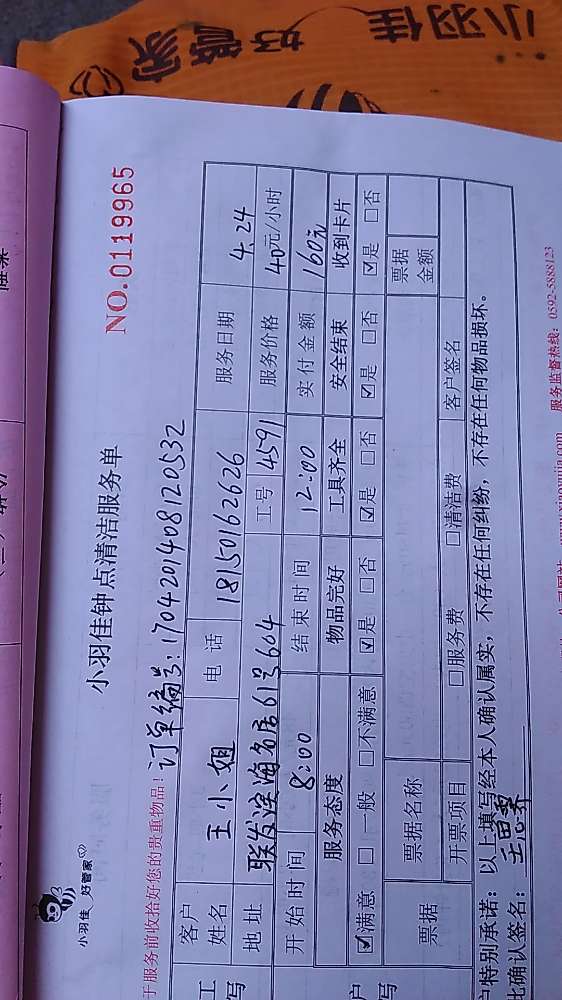 小羽佳 好管家
小羽佳 好管家
小羽佳钟点清洁服务单
NO.0119965
于服务前收拾好您的贵重物品! 订单编号:1704201408120532
客户姓名 王小姐 电话 18150162626 服务日期 4.24
地址 联发滨海名居61号604 工号 4591 服务价格 40元/小时
开始时间 8:00 结束时间 12:00 实付金额 160元
服务态度 物品完好 工具齐全 安全结束 收到卡片
☑满意 □一般 □不满意 ☑是 □否 ☑是 □否 ☑是 □否 ☑是 □否
票据 票据名称 票据金额
开票项目 □服务费 □清洁费 客户签名
户特别承诺:以上填写经本人确认属实,不存在任何纠纷,不存在任何物品损坏。
此确认签名:
服务监督热线:0592-5888123